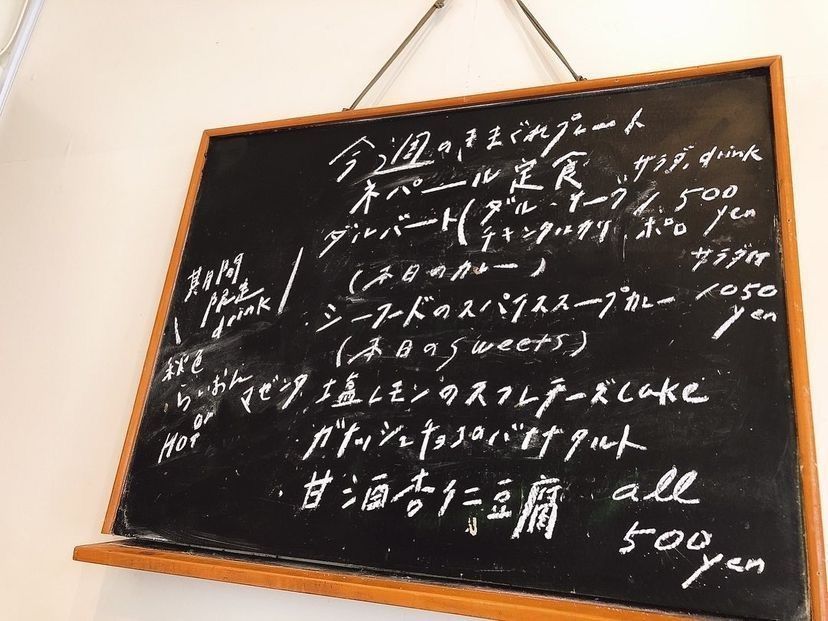 今週のきまぐれプレート
ネパール定食 サラダ, drink
ダルバート(ダル・サーグ 1,500 yen
チキンタルカリ ポロ
(本日のカレー) サラダ付
・シーフードのスパイススープカレー 1050 yen
(本日のsweets)
・塩レモンのスフレチーズcake
ガナッシュチョコのバナナタルト
・甘酒杏仁豆腐 all
500 yen
期間
限定
drink
秋色
らいおん マゼンタ
or
HOT